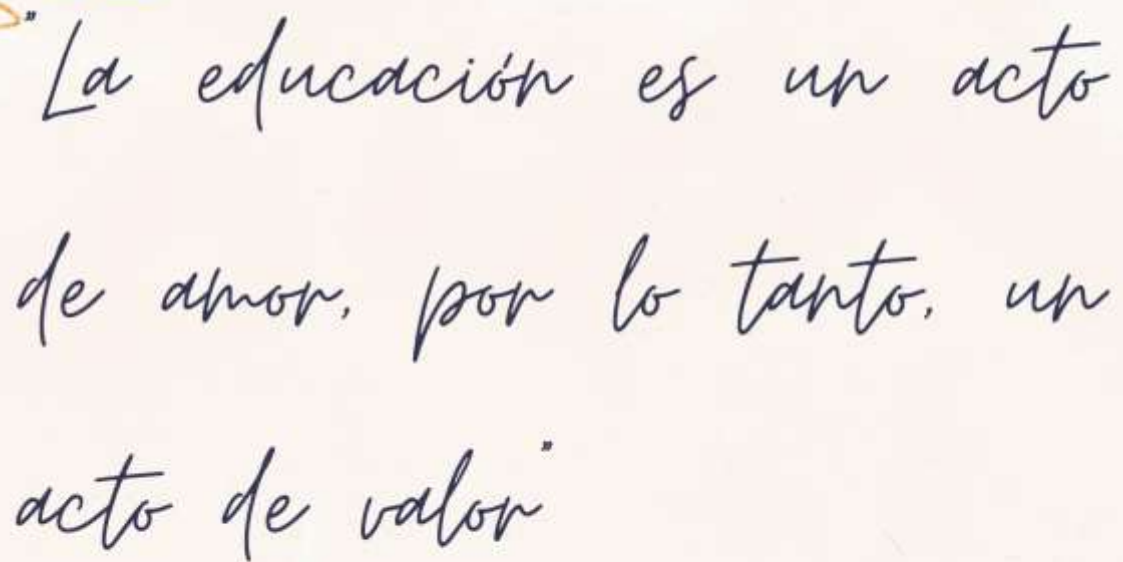 "La educación es un acto
de amor, por lo tanto, un
acto de valor"